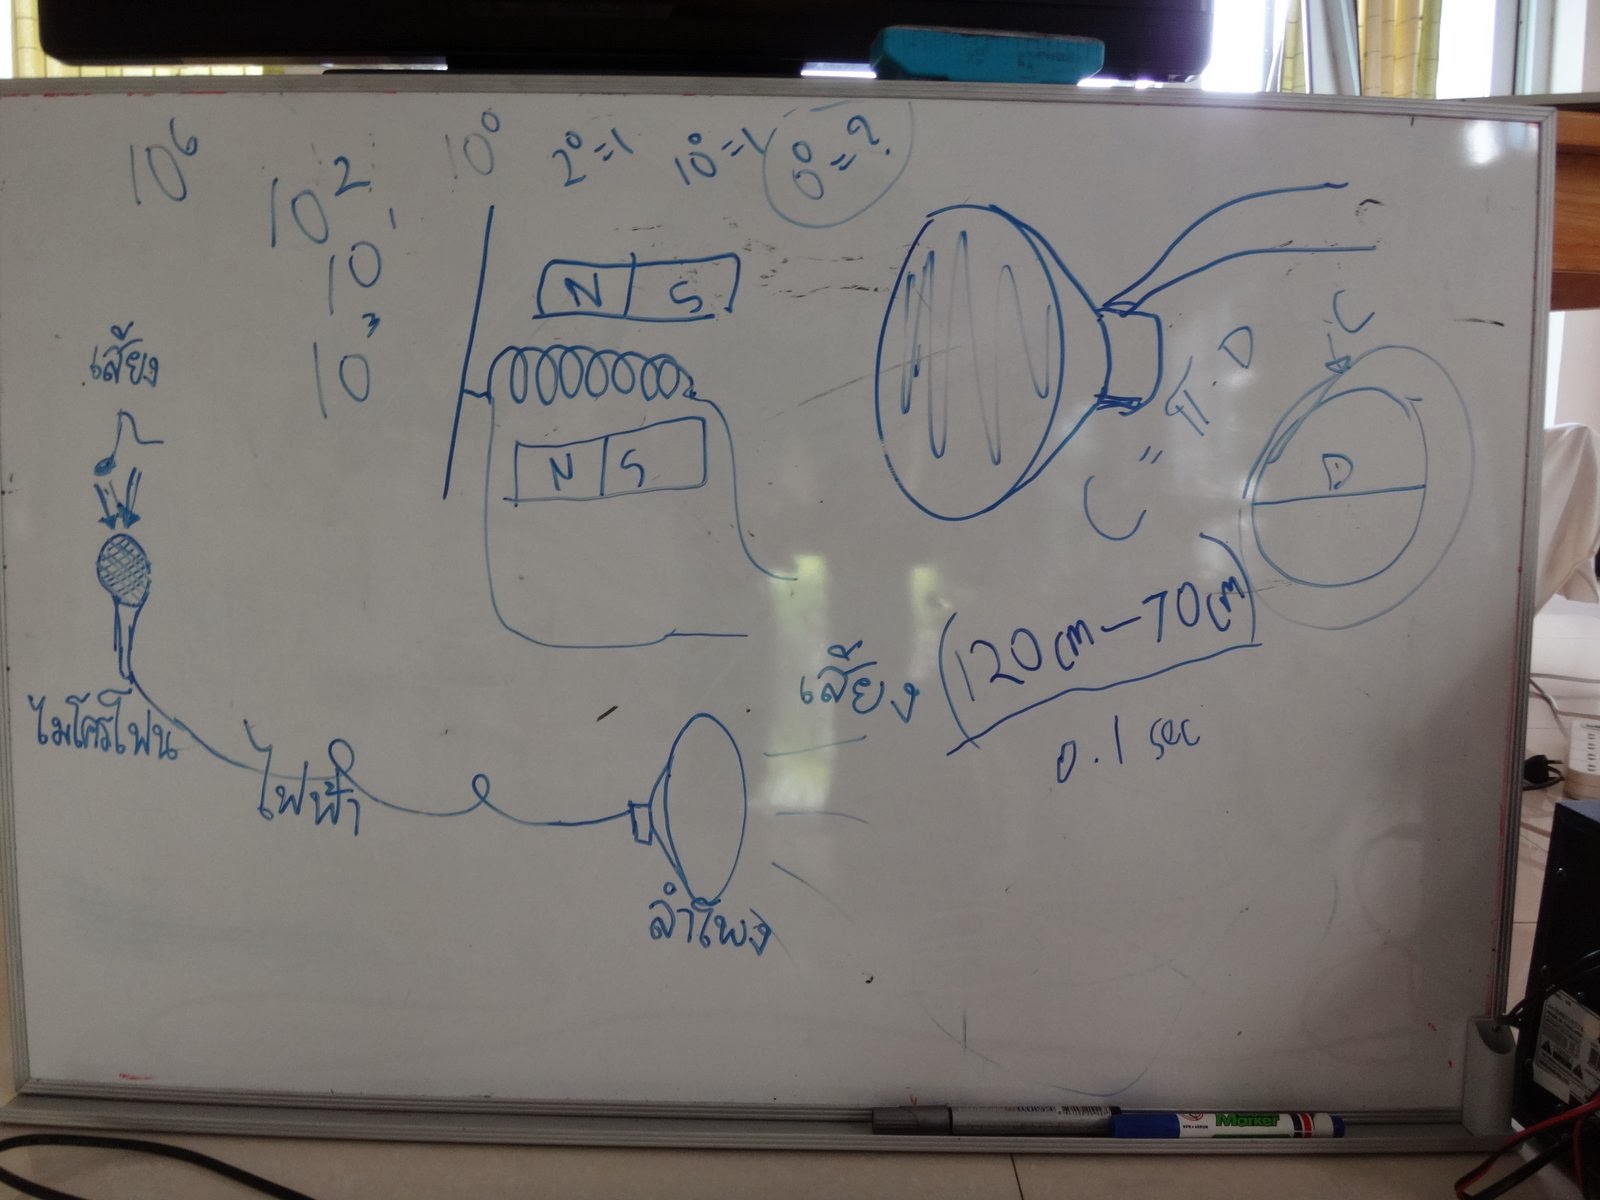 10⁶
10²
10¹
10³
10⁰
2⁰=1
10⁰=1
0⁰=?
N S
N S
เสี้ยง
ไมโครโฟน
ไฟฟ้า
ลำโพง
เสี้ยง
C = π.D
C
D
(120cm-70cm)
0.1 sec
Marker